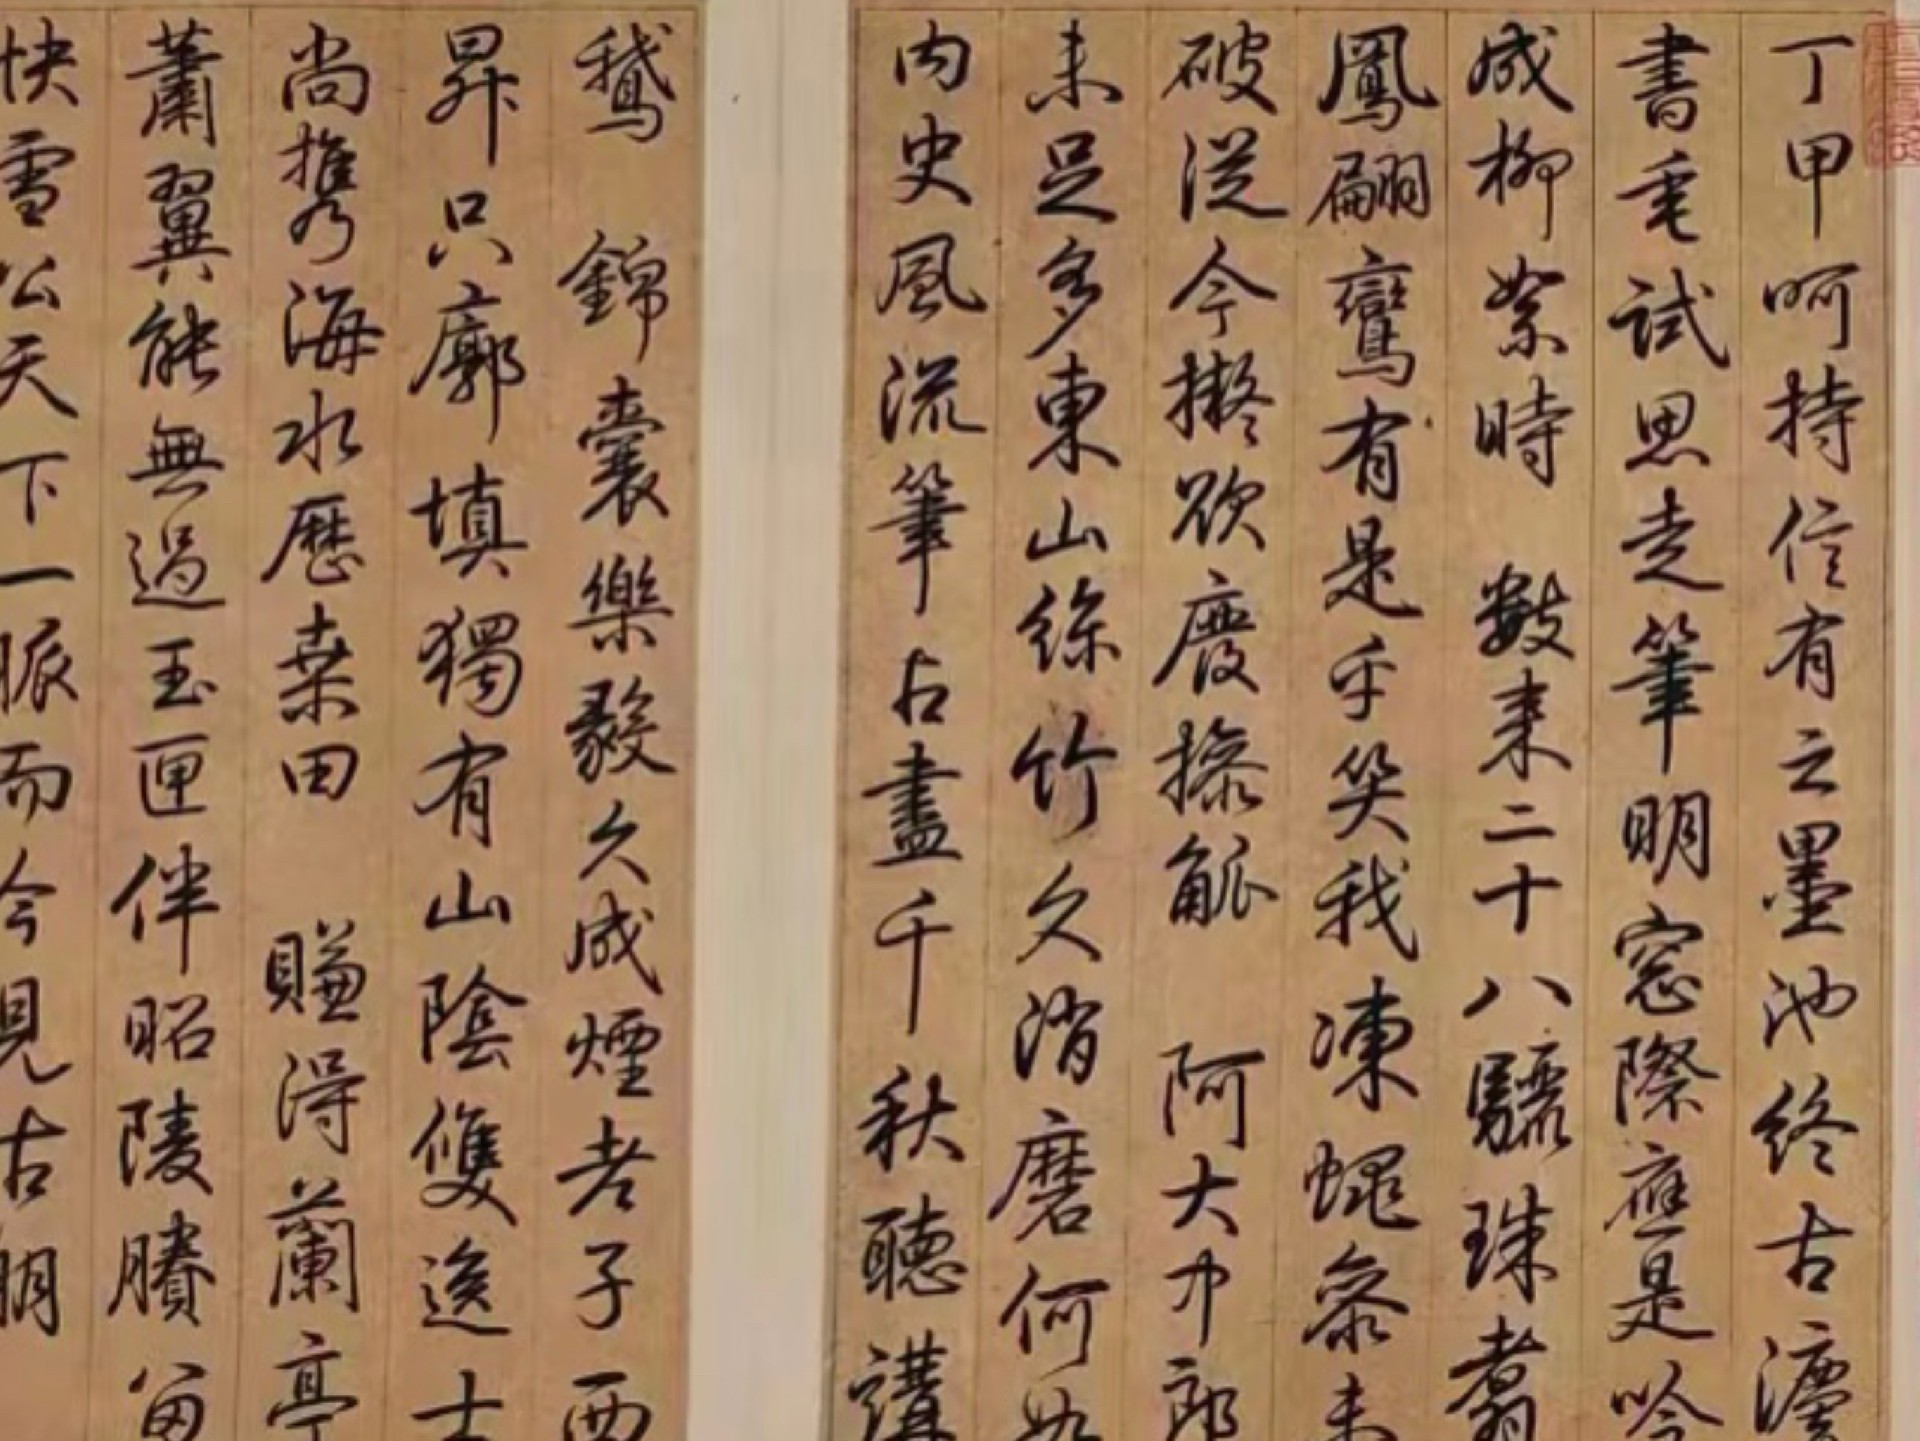 丁甲呵持信有之墨池終古
書重試思走筆明窓際應是吟
成柳絮時 數來二十八驪珠翥
鳳翩鸞有是乎笑我凍蠅粂未
破從今擬欲廢操觚 阿大中郎
未足多東山絲竹久消磨何如
内史風流筆占盡千秋聽講
鵝 錦囊樂毅久成煙老子西
昇只廓填獨有山陰雙逸士
尚攜海水歷桑田 賺得蘭亭
蕭翼能無過玉匣伴昭陵賸留
快雪公天下一脈而今見古朋